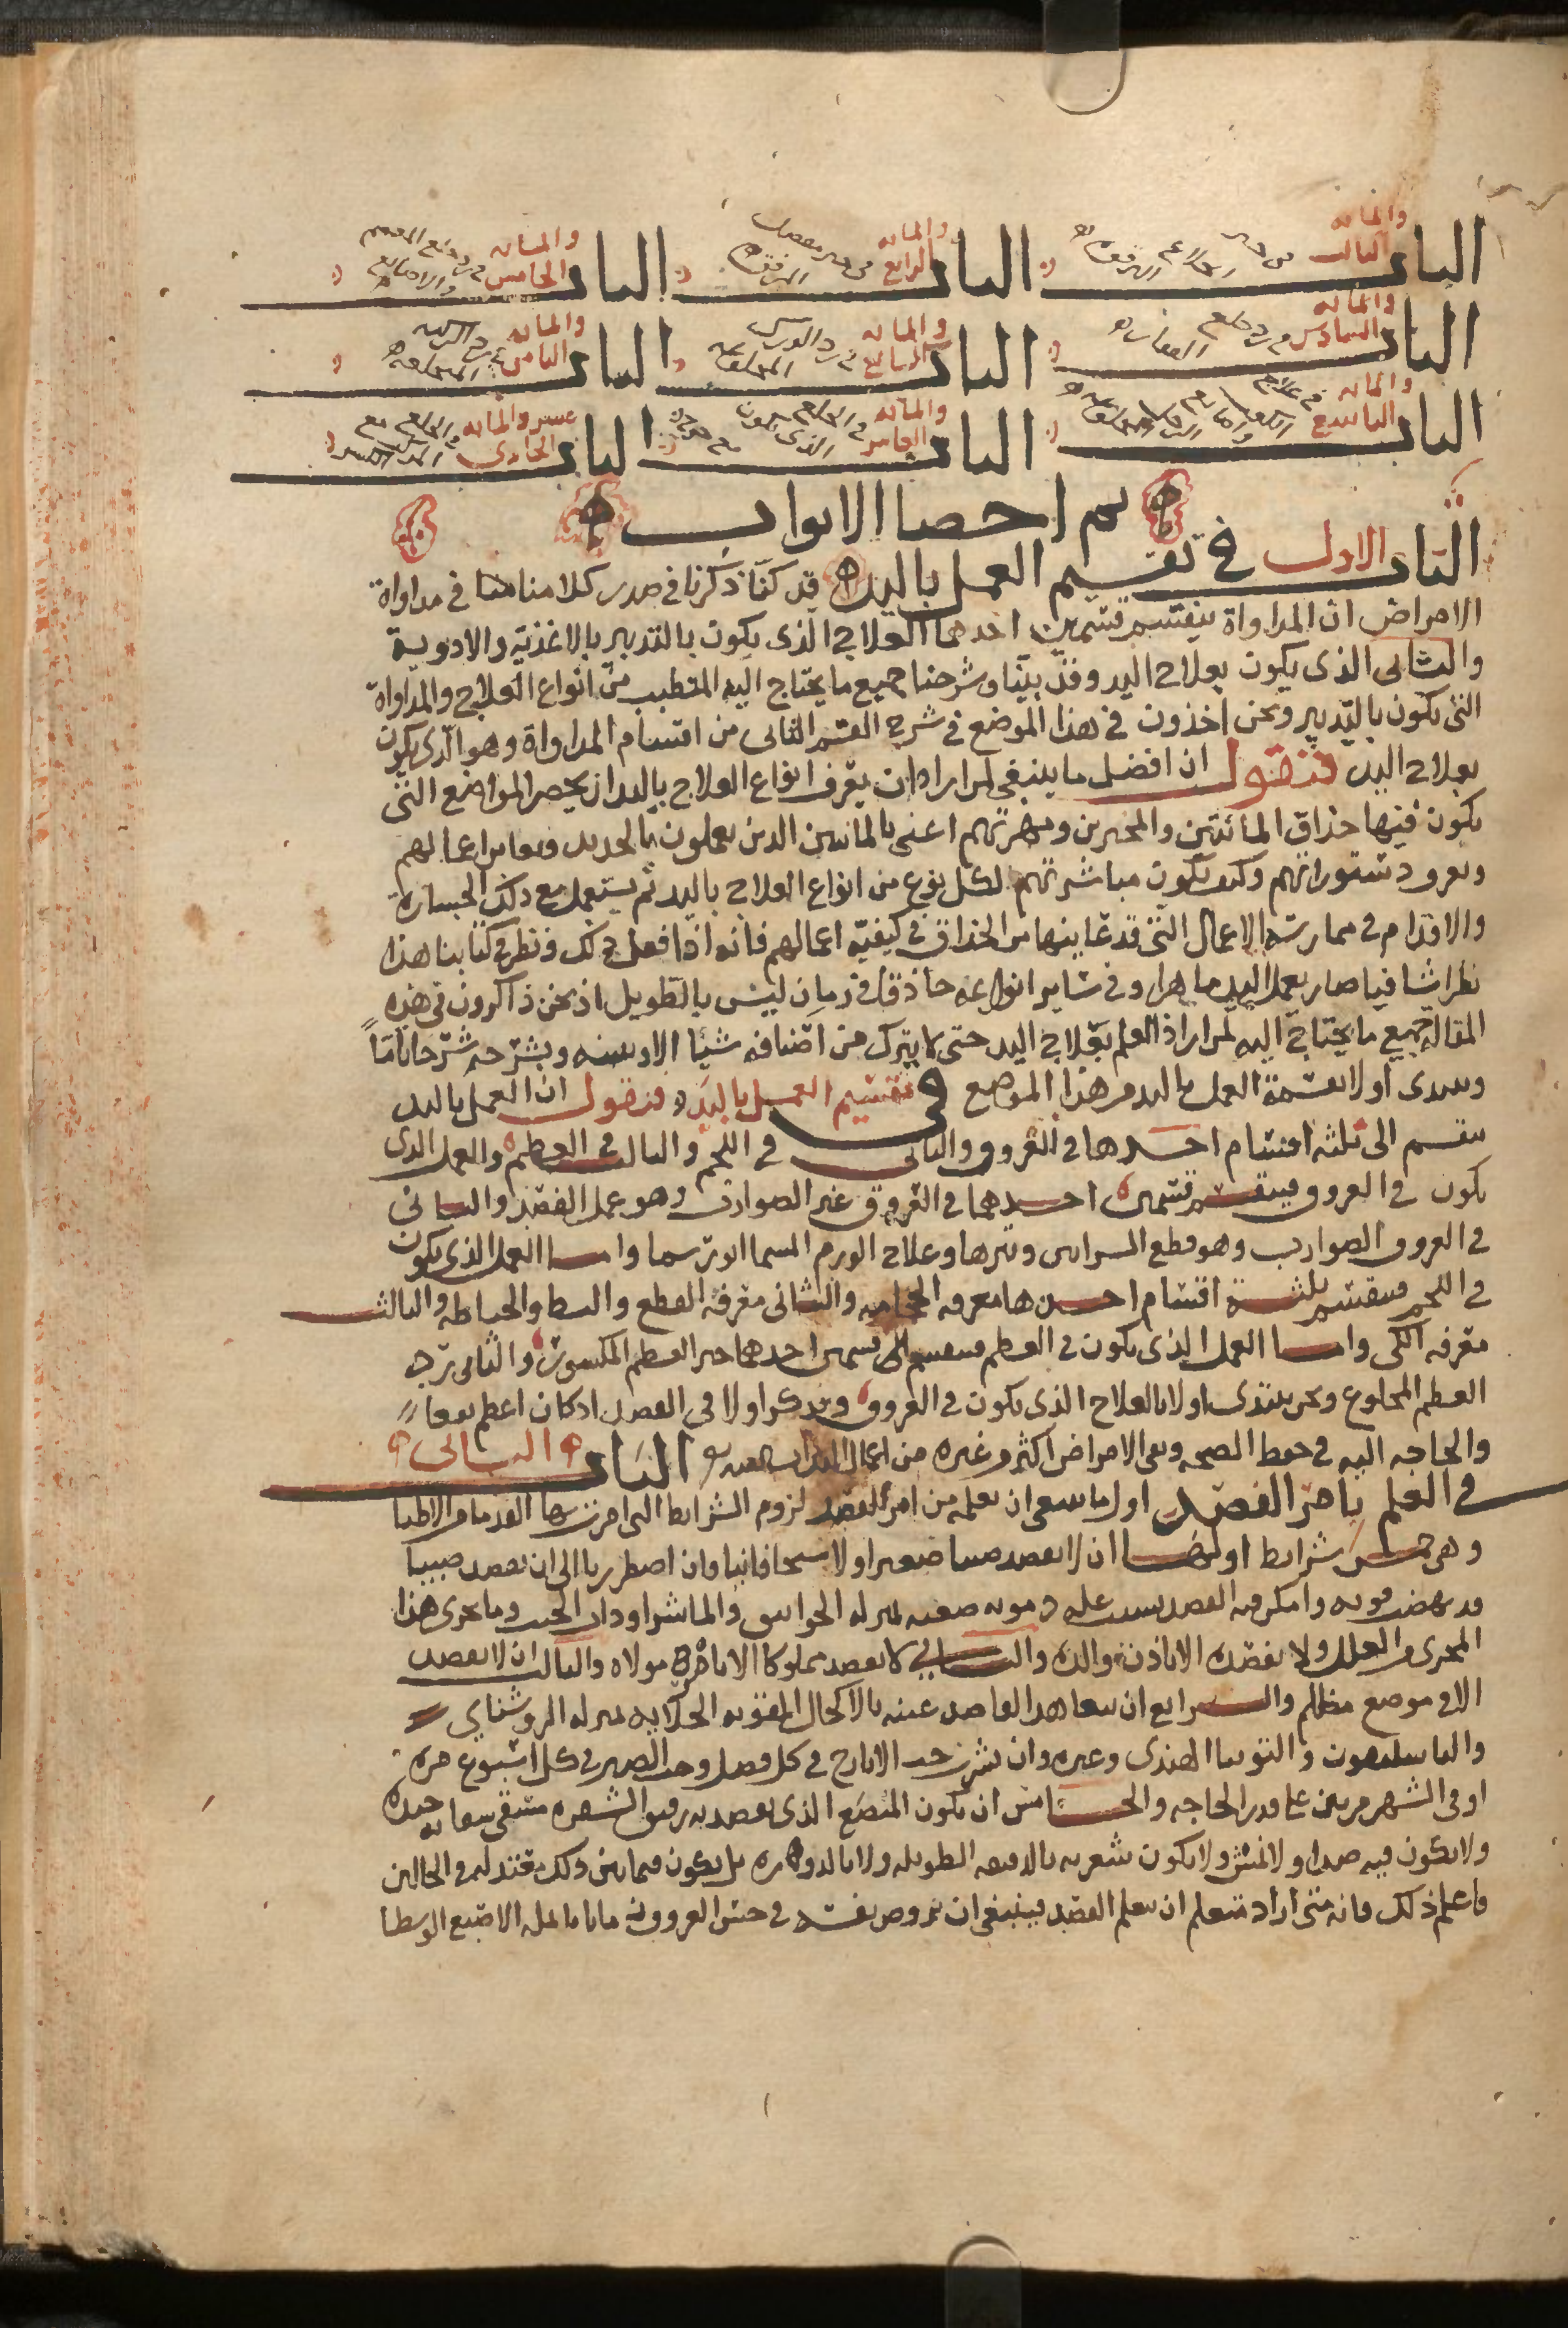 الباب الثالث والمائة في
الباب الرابع والمائة في
الباب الخامس والمائة في
الباب السادس والمائة في خلع
الباب السابع والمائة في رد الورك المنخلعه
الباب الثامن والمائة في رد الركبه المنخلعه
الباب التاسع والمائة في علاج
الباب العاشر والمائة في الخلع الذي يكون مع جراحه
الباب الحادي عشر والمائة في الخلع مع الكسر
تم احصا الابواب
الباب الاول في تقسيم العمل باليد قد كنا ذكرنا في صدر كلامنا هنا في مداواة
الامراض ان المداواة ينقسم قسمين احدهما العلاج الذي يكون بالتدبير بالاغذيه والادوية
والثاني الذي يكون بعلاج اليد وقد بينا وشرحنا جميع ما يحتاج اليه المتطبب من انواع العلاج والمداواة
التي يكون بالتدبير ونحن اخذون في هذا الموضع في شرح القسم الثاني من اقسام المداواة وهو الذي يكون
بعلاج اليد فنقول ان افضل ما ينبغي لمن اراد ان يعرف انواع العلاج باليد ان يحضر المواضع التي
يكون فيها حذاق المائتين والمجبرين ومهرتهم اعني بالماسين الذين يعملون بالحديد ويعاين اعمالهم
ويعرف دستوراتهم وكيف يكون مباشرتهم لكل نوع من انواع العلاج باليد ثم يستعمل مع ذلك الجساره
والاقدام في ممارسة الاعمال التي قد عاينها من الحذاق في كيفيه اعمالهم فانه اذا فعل ذلك ونظر في كتابنا هذا
نظرا شافيا صار بعمل اليد ماهرا وفي ساير انواعه حاذقا في زمان ليس بالطويل اذ نحن ذاكرون في هذه
المقالة جميع ما يحتاج اليه لمن اراد العلم بعلاج اليد حتى لا يترك من اصنافه شيا الا وبينه ويشرحه شرحا تاما
ونبدى اولا بقسمة العمل باليد من هذا الموضع في تقسيم العمل باليد فنقول ان العمل باليد
ينقسم الى ثلثه اقسام احدها في العروق والثاني في اللحم والثالث في العظم والعمل الذي
يكون في العروق فينقسم قسمين احدهما في العروق غير الضوارب وهو عمل الفصد والثاني
في العروق الضوارب وهو قطع الشرايين وبترها وعلاج الورم المسما انورسما واما العمل الذي يكون
في اللحم فينقسم ثلثة اقسام احدها معرفه الحجامه والثاني معرفة القطع والبط والخياطه والثالث
معرفه الكي واما العمل الذي يكون في العظم فينقسم الى قسمين احدهما جبر العظم المكسور والثاني رد
العظم المخلوع ونحن نبتدى اولا بالعلاج الذي يكون في العروق ونذكر اولا في الفصد اذ كان اعظم نفعا
والحاجه اليه في حفظ الصحه ونفي الامراض اكثر من غيره من اعمال اليد الباب الثاني
في العلم بامر الفصد اول ما ينبغي ان تعلمه من امر الفصد لزوم الشرايط التي امرت بها القدما من الاطبا
وهي خمس شرايط اولها ان لا يفصد صبيا صغيرا ولا شيخا فانيا وان اضطررنا الى ان نفصد صبيا
قد نهض قوته وامكن فيه الفصد بسبب علة دمويه صعبه بمنزله الخوانيق والماشرا وذات الجنب وما يجرى هذا
المجرى من العلل ولا نفصده الا باذن والده والثاني لا يفصد مملوكا الا بامر مولاه والثالث ان لا يفصد
الا في موضع مظلم والرابع ان يتعاهد الفاصد عينه بالاكحال المقويه الجلايه بمنزله الروشناي
والباسليقون والتوتيا الهندى وغيره وان يشرب حب الايارج في كل فصل وحب الصبر في كل اسبوع مره
او في الشهر مرتين على قدر الحاجه والخامس ان يكون المبضع الذي يفصد به رقيق الشعره مسقى سقايه جيده
ولا يكون فيه صدا ولا نمش ولا يكون شعرته بالدقيقه الطويله ولا بالمدوره بل يكون فيما بين ذلك معتدله في الحالين
واعلم ذلك فانه متى اراد متعلم ان يتعلم الفصد فينبغي ان يروض نفسه في جس العروق ماتا بانمله الاصبع الوسطا